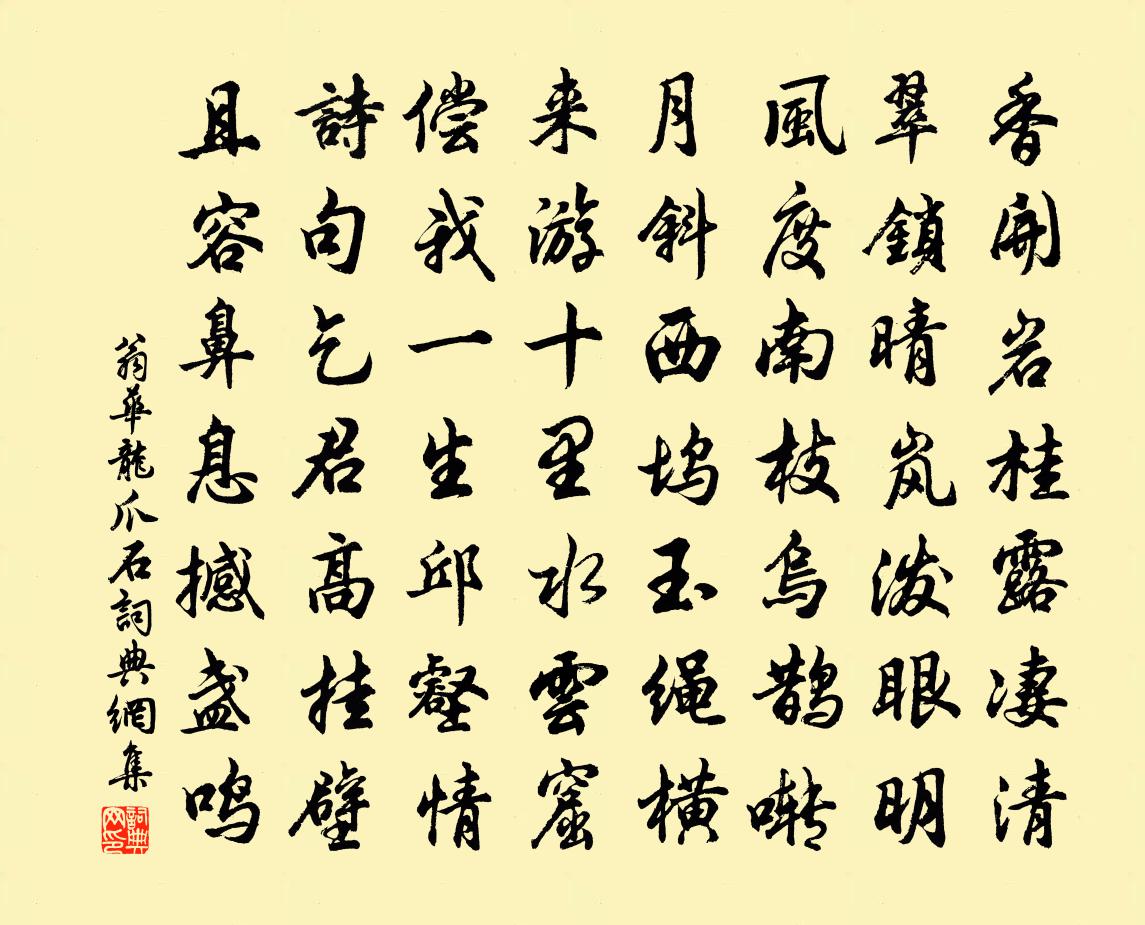 香開岩桂露凄清
翠鎖晴岚泼眼明
風度南枝烏鹊嘶
月斜西坞玉绳横
来游十里水雲窟
偿我一生邱壑情
詩句乞君高挂壁
且容鼻息撼盏鸣
翁華龍爪石詞典網集
詞典网印